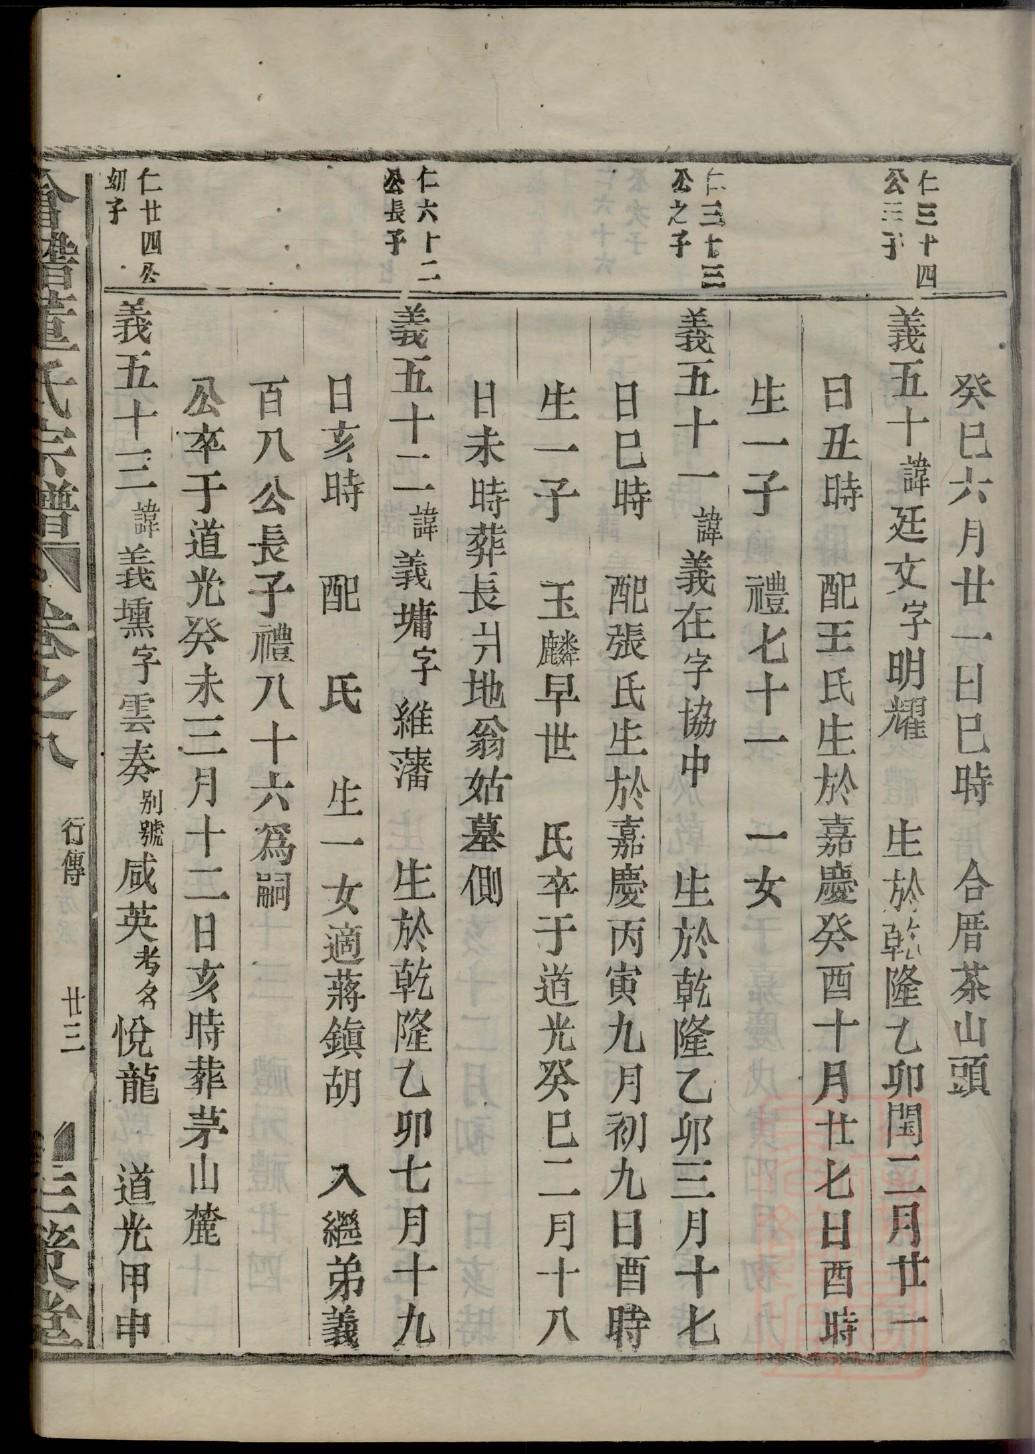 癸巳六月廿一日巳時　合厝茶山頭
仁三十四
公三子
義五十諱廷文字明耀　生於乾隆乙卯閏二月廿一
日丑時　配王氏生於嘉慶癸酉十月廿七日酉時
生一子　禮七十一　一女
仁三十三
公之子
義五十一諱義在字協中　生於乾隆乙卯三月十七
日巳時　配張氏生於嘉慶丙寅九月初九日酉時
生一子　玉麟早世　氏卒于道光癸巳二月十八
日未時葬長爿地翁姑墓側
仁六十二
公長子
義五十二諱義墉字維藩　生於乾隆乙卯七月十九
日亥時　配　氏　生一女適蔣鎮胡　入繼弟義
百八公長子禮八十六為嗣
公卒于道光癸未三月十二日亥時葬茅山麓
仁廿四公
幼子
義五十三諱義壎字雲奏別號咸英考名悅龍　道光甲申
會稽董氏宗譜　卷之八　行傳　廿三　三策堂